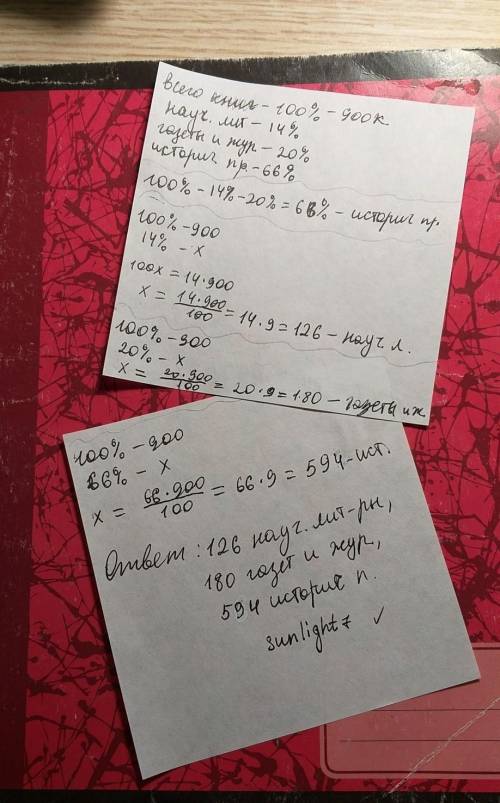 всего книг - 100% - 900к
науч. лит - 14%
газеты и жур - 20%
историч пр. - 66%
100% - 14% - 20% = 66% - историч пр.
100% - 900
14% - x
100x = 14·900
x = 14·900/100 = 14·9 = 126 - науч. л.
100% - 900
20% - x
x = 20·900/100 = 20·9 = 180 - газеты и ж.
100% - 900
66% - x
x = 66·900/100 = 66·9 = 594 - ист.
Ответ: 126 науч. лит-ры,
180 газет и жур,
594 историч п.
sunlight